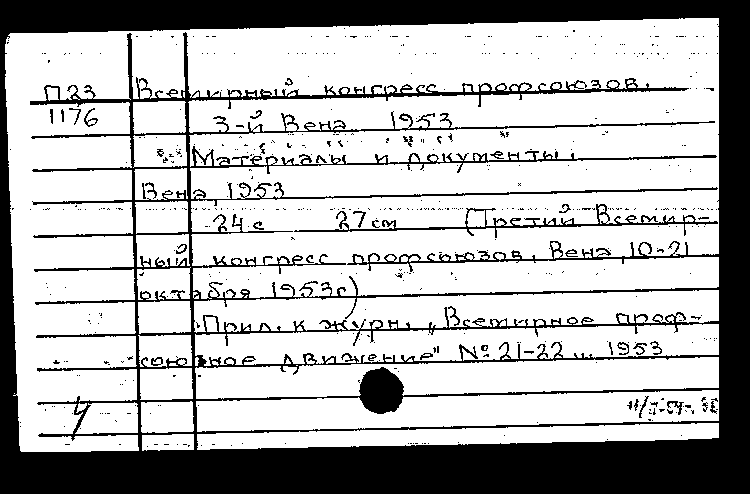 П23 Всемирный конгресс профсоюзов.
1176 3-й Вена 1953
Материалы и документы.
Вена, 1953
24 с 27 см (Третий Всемир-
ный конгресс профсоюзов, Вена, 10-21
октября 1953г)
Прил. к журн. "Всемирное проф-
союзное движение" № 21-22 ... 1953
4